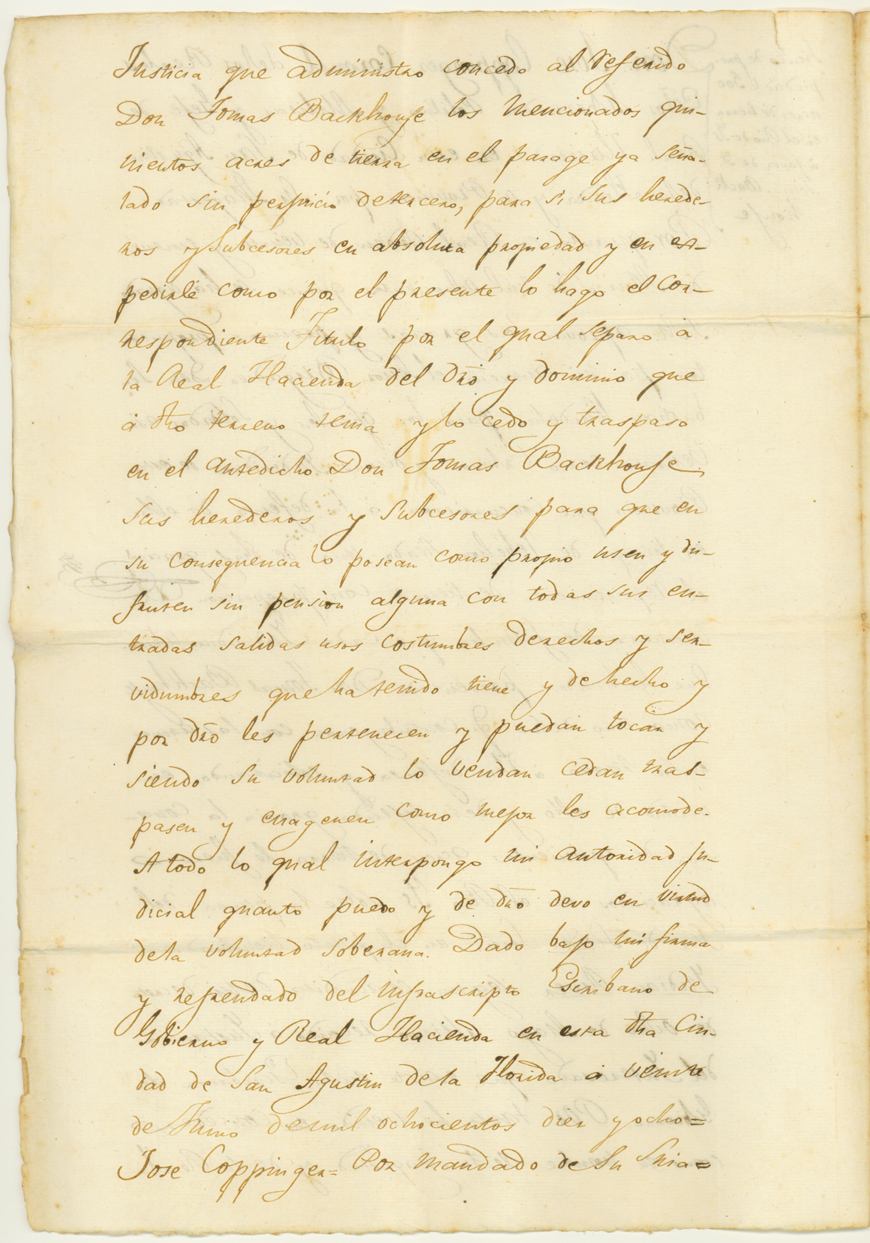 Justicia que administro concedo al referido
Don Tomas Backhouse los mencionados qui-
nientos acres de tierra en el parage ya seña-
lado sin perjuicio de tercero, para si, sus herede-
ros y Subcesores en absoluta propiedad y en es-
pedirle como por el presente lo hago el Cor-
respondiente Titulo por el qual separo a
la Real Hacienda del dro y dominio que
á dho terreno tenia y lo cedo y traspaso
en el antedicho Don Tomas Backhouse,
sus herederos y Subcesores para que en
su consequencia lo posean como propio usen y dis-
fruten sin pension alguna con todas sus en-
tradas salidas usos costumbres derechos y ser-
vidumbres que ha tenido tiene y de hecho y
por dro les pertenecen y puedan tocar y
siendo su voluntad lo vendan cedan tras-
pasen y enagenen como mejor les acomode.
A todo lo qual interpongo mi autoridad Ju-
dicial quanto puedo y de dro devo en virtud
de la voluntad soberana. Dado bajo mi firma
y refrendado del infrascripto Escribano de
Gobierno y Real Hacienda en esta dha Ciu-
dad de San Agustin de la Florida á veinte
de Junio de mil ochocientos diez y ocho=
Jose Coppinger= Por mandado de Su Sria=